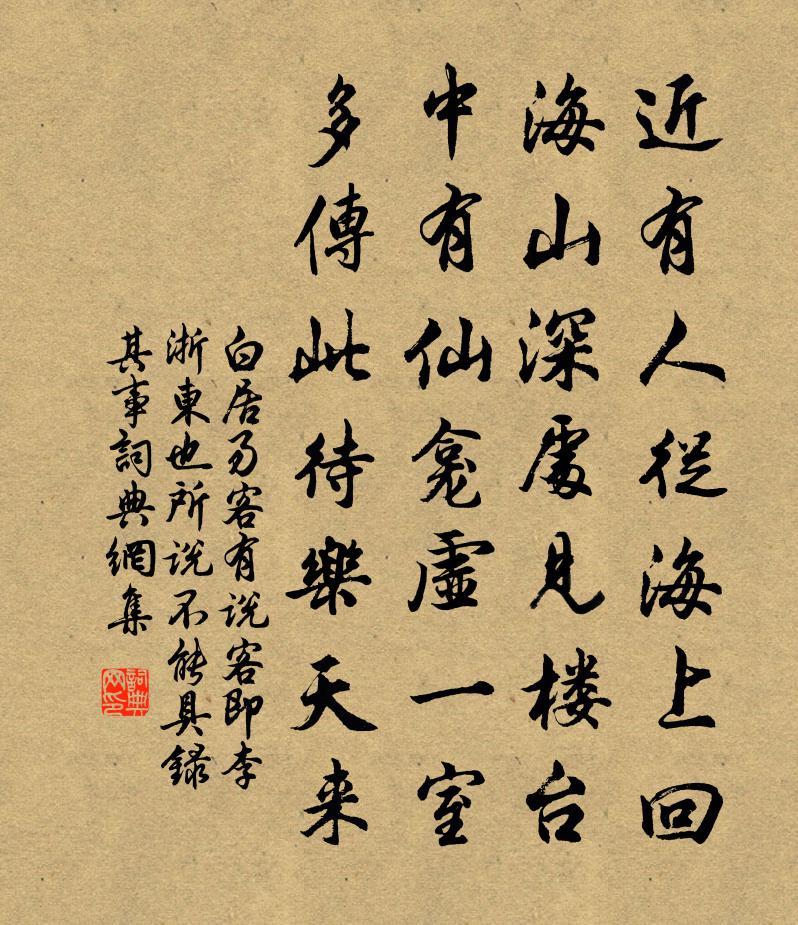 近有人從海上回
海山深處見楼台
中有仙龛虛一室
多傳此待樂天来
白居易客有说客即李
浙東也所说不能具錄
其事詞典網集
詞典网印